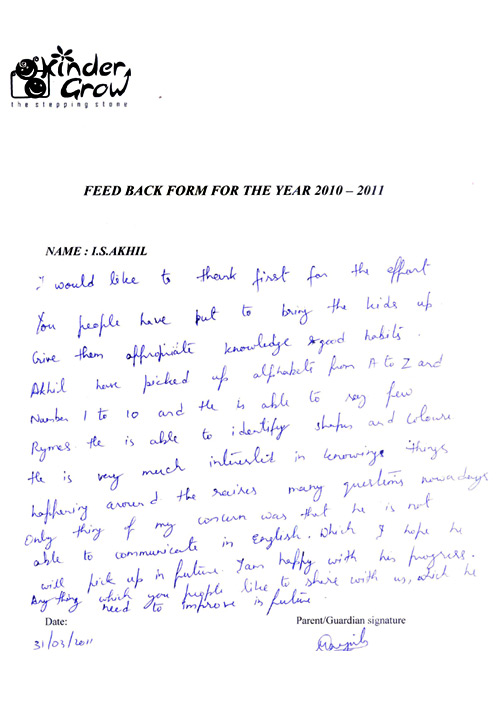 Kinder
Grow
the stepping stone
FEED BACK FORM FOR THE YEAR 2010 – 2011
NAME : I.S.AKHIL
I would like to thank first for the effort
You people have put to bring the kids up
Give them appropriate knowledge & good habits.
Akhil have picked up alphabets from A to Z and
Number 1 to 10 and He is able to say few
Rymes. He is able to identify shapes and colours
He is very much interested in knowing things
happening around the raises many questions nowadays
Only thing of my concern was that he is not
able to communicate in English. Which I hope he
will pick up in future. I am happy with his progress.
Any thing which you people like to share with us, which he
need to improve in future.
Date:
Parent/Guardian signature
31/03/2011